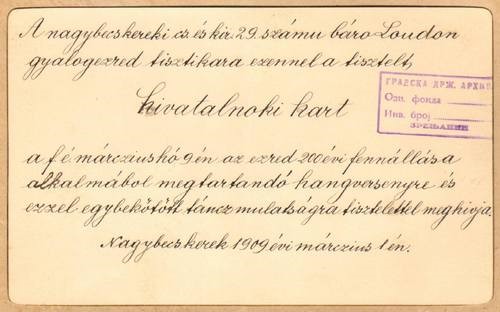 A nagybecskereki cs. és kir. 29. számu báro Loudon
gyalogezred tisztikara ezennel a tisztelt
hivatalnoki kart
a f é márcziushó 9én az ezred 200 évi fennállása
alkalmábol megtartandó hangversenyre és
ezzel egybekötött táncz mulatságra tisztelettel meghivja.
Nagybecskerek 1909 évi márczius 1én.
ГРАДСКА ДРЖ. АРХИВ
Озн. фонда
Инв. број
ЗРЕЊАНИН